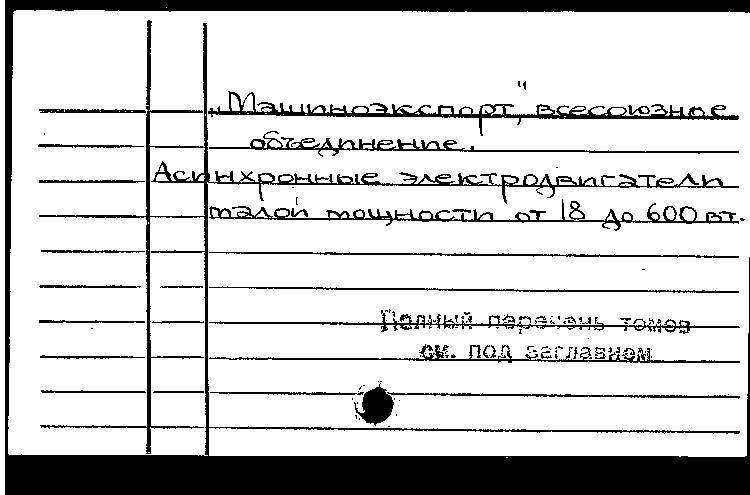 „Машиноэкспорт", всесоюзное
объединение.
Асинхронные электродвигатели
малой мощности от 18 до 600 вт.
Полный перечень томов
см. под заглавием